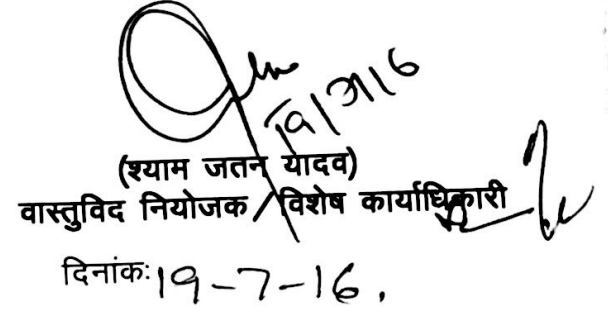 19/7/16
(श्याम जतन यादव)
वास्तुविद नियोजक/विशेष कार्याधिकारी
दिनांकः19-7-16.